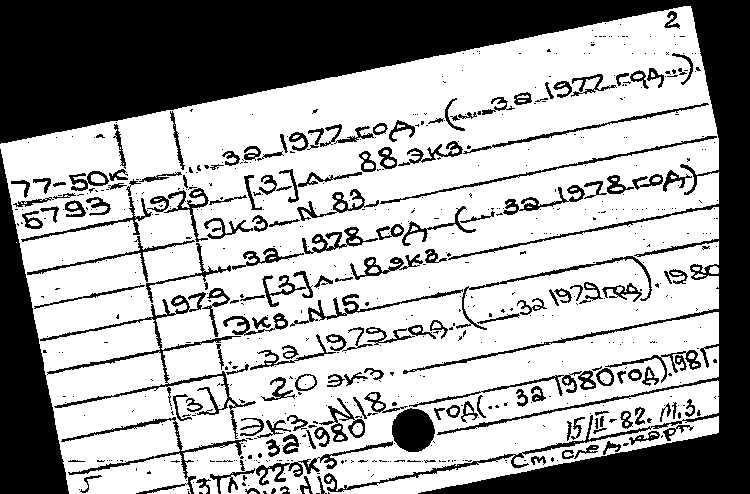 2
... за 1977 год. (... за 1977 год...).
77-50к 1979. [3] л. 88 экз.
5793 Экз. N 83.
... за 1978 год. (... за 1978 год)
1979. [3] л. 18 экз.
Экз. N 15.
... за 1979 год. (... за 1979 год). 1980
[3] л. 20 экз.
Экз. N 18.
... за 1980 год (... за 1980 год). 1981.
[3] л. 22 экз.
Экз. N 19.
15/II-82. М.З.
См. след. карт.